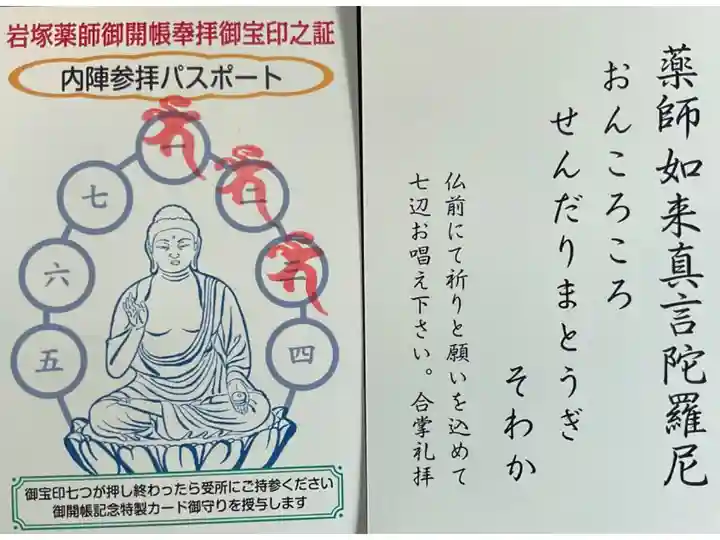 岩塚薬師御開帳奉拝御宝印之証
内陣参拝パスポート
一
二
三
四
五
六
七
御宝印七つが押し終わったら受所にご持参ください
御開帳記念特製カード御守りを授与します
薬師如来真言陀羅尼
おんころころ
せんだりまとうぎ
そわか
仏前にて祈りと願いを込めて
七辺お唱え下さい。合掌礼拝